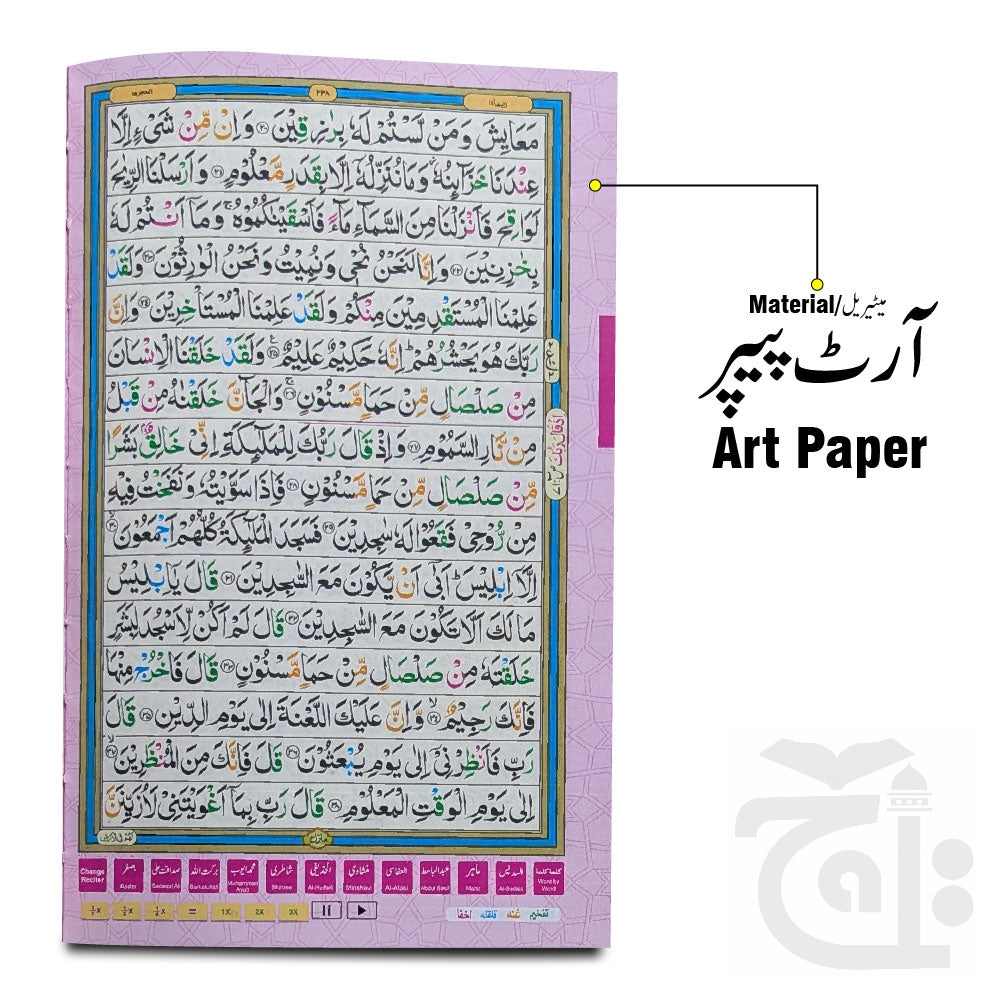 ربما ١٤
٢٣٨
الحجر ١٥
مَعَايِشَ وَمَنْ لَّسْتُمْ لَهٗ بِرٰزِقِيْنَ ﴿۲۰﴾ وَاِنْ مِّنْ شَيْءٍ اِلَّا
عِنْدَنَا خَزَآئِنُهٗ ۡ وَمَا نُنَزِّلُهٗۤ اِلَّا بِقَدَرٍ مَّعْلُوْمٍ ﴿۲۱﴾ وَاَرْسَلْنَا الرِّيٰحَ
لَوَاقِحَ فَاَنْزَلْنَا مِنَ السَّمَآءِ مَآءً فَاَسْقَيْنٰكُمُوْهُ ۚ وَمَاۤ اَنْتُمْ لَهٗ
بِخٰزِنِيْنَ ﴿۲۲﴾ وَاِنَّا لَنَحْنُ نُحْيٖ وَنُمِيْتُ وَنَحْنُ الْوٰرِثُوْنَ ﴿۲۳﴾ وَلَقَدْ
عَلِمْنَا الْمُسْتَقْدِمِيْنَ مِنْكُمْ وَلَقَدْ عَلِمْنَا الْمُسْتَاْخِرِيْنَ ﴿۲۴﴾ وَاِنَّ
رَبَّكَ هُوَ يَحْشُرُهُمْ ؕ اِنَّهٗ حَكِيْمٌ عَلِيْمٌ ﴿۲۵﴾ وَلَقَدْ خَلَقْنَا الْاِنْسَانَ
مِنْ صَلْصَالٍ مِّنْ حَمَاٍ مَّسْنُوْنٍ ﴿۲۶﴾ وَالْجَآنَّ خَلَقْنٰهُ مِنْ قَبْلُ
مِنْ نَّارِ السَّمُوْمِ ﴿۲۷﴾ وَاِذْ قَالَ رَبُّكَ لِلْمَلٰٓئِكَةِ اِنِّيْ خَالِقٌۢ بَشَرًا
مِّنْ صَلْصَالٍ مِّنْ حَمَاٍ مَّسْنُوْنٍ ﴿۲۸﴾ فَاِذَا سَوَّيْتُهٗ وَنَفَخْتُ فِيْهِ
مِنْ رُّوْحِيْ فَقَعُوْا لَهٗ سٰجِدِيْنَ ﴿۲۹﴾ فَسَجَدَ الْمَلٰٓئِكَةُ كُلُّهُمْ اَجْمَعُوْنَ ﴿۳۰﴾
اِلَّاۤ اِبْلِيْسَ ؕ اَبٰۤى اَنْ يَّكُوْنَ مَعَ السّٰجِدِيْنَ ﴿۳۱﴾ قَالَ يٰۤاِبْلِيْسُ
مَا لَكَ اَلَّا تَكُوْنَ مَعَ السّٰجِدِيْنَ ﴿۳۲﴾ قَالَ لَمْ اَكُنْ لِّاَسْجُدَ لِبَشَرٍ
خَلَقْتَهٗ مِنْ صَلْصَالٍ مِّنْ حَمَاٍ مَّسْنُوْنٍ ﴿۳۳﴾ قَالَ فَاخْرُجْ مِنْهَا
فَاِنَّكَ رَجِيْمٌ ﴿۳۴﴾ وَّاِنَّ عَلَيْكَ اللَّعْنَةَ اِلٰى يَوْمِ الدِّيْنِ ﴿۳۵﴾ قَالَ
رَبِّ فَاَنْظِرْنِيْۤ اِلٰى يَوْمِ يُبْعَثُوْنَ ﴿۳۶﴾ قَالَ فَاِنَّكَ مِنَ الْمُنْظَرِيْنَ ﴿۳۷﴾
اِلٰى يَوْمِ الْوَقْتِ الْمَعْلُوْمِ ﴿۳۸﴾ قَالَ رَبِّ بِمَاۤ اَغْوَيْتَنِيْ لَاُزَيِّنَنَّ
لَهُمْ فِي الْاَرْضِ
منزل ٣
Change Reciter
اصغر
صداقت علی Sadaqat Ali
برکت اللہ Barkatullah
محمد ایوب Muhammad Ayub
شاطری Shatree
الحذیفی Al-Hudaifi
منشاوی Minshawi
العفاسی Al-Afasi
عبدالباسط Abdul Basit
ماہر Maher
السدیس Al-Sudais
کلمہ کلمہ Word by Word
½X ⅓X ¼X = 1X 2X 3X
تفخیم غنہ قلقلہ اخفا
Material/میٹیریل
آرٹ پیپر
Art Paper
تاج